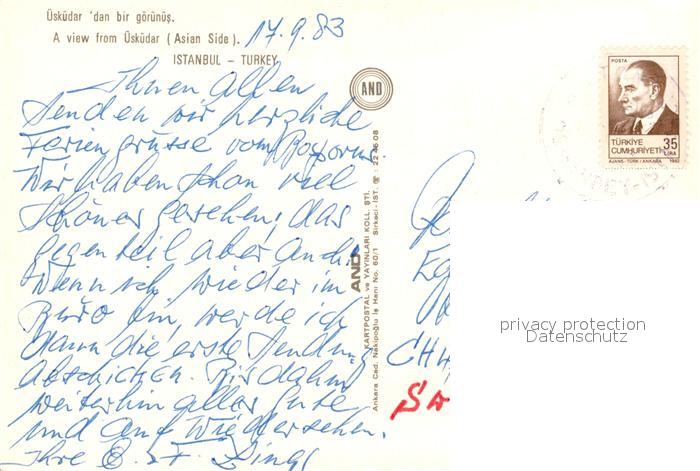 Üsküdar 'dan bir görünüş.
A view from Üsküdar (Asian Side).
ISTANBUL – TURKEY
17.9.83
Ihnen Allen
senden wir herzliche
Feriengrüsse vom Bosporus
Wir haben schon viel
schönes gesehen, das
gegenteil aber auch.
Wenn ich wieder im
Büro bin, werde ich
dann die erste Sendung
abschicken. Bis dahin
weiterhin alles Gute
und auf Wiedersehen.
Ihre
AND
AND
KARTPOSTAL ve YAYINLARI KOLL. ŞTİ.
Ankara Cad. Nakipoğlu İş Hanı No. 60/1 Sirkeci-İST.
POSTA
TÜRKİYE
CUMHURİYETİ
35
LİRA
AJANS-TÜRK/ANKARA 1982
CH
SA
privacy protection
Datenschutz